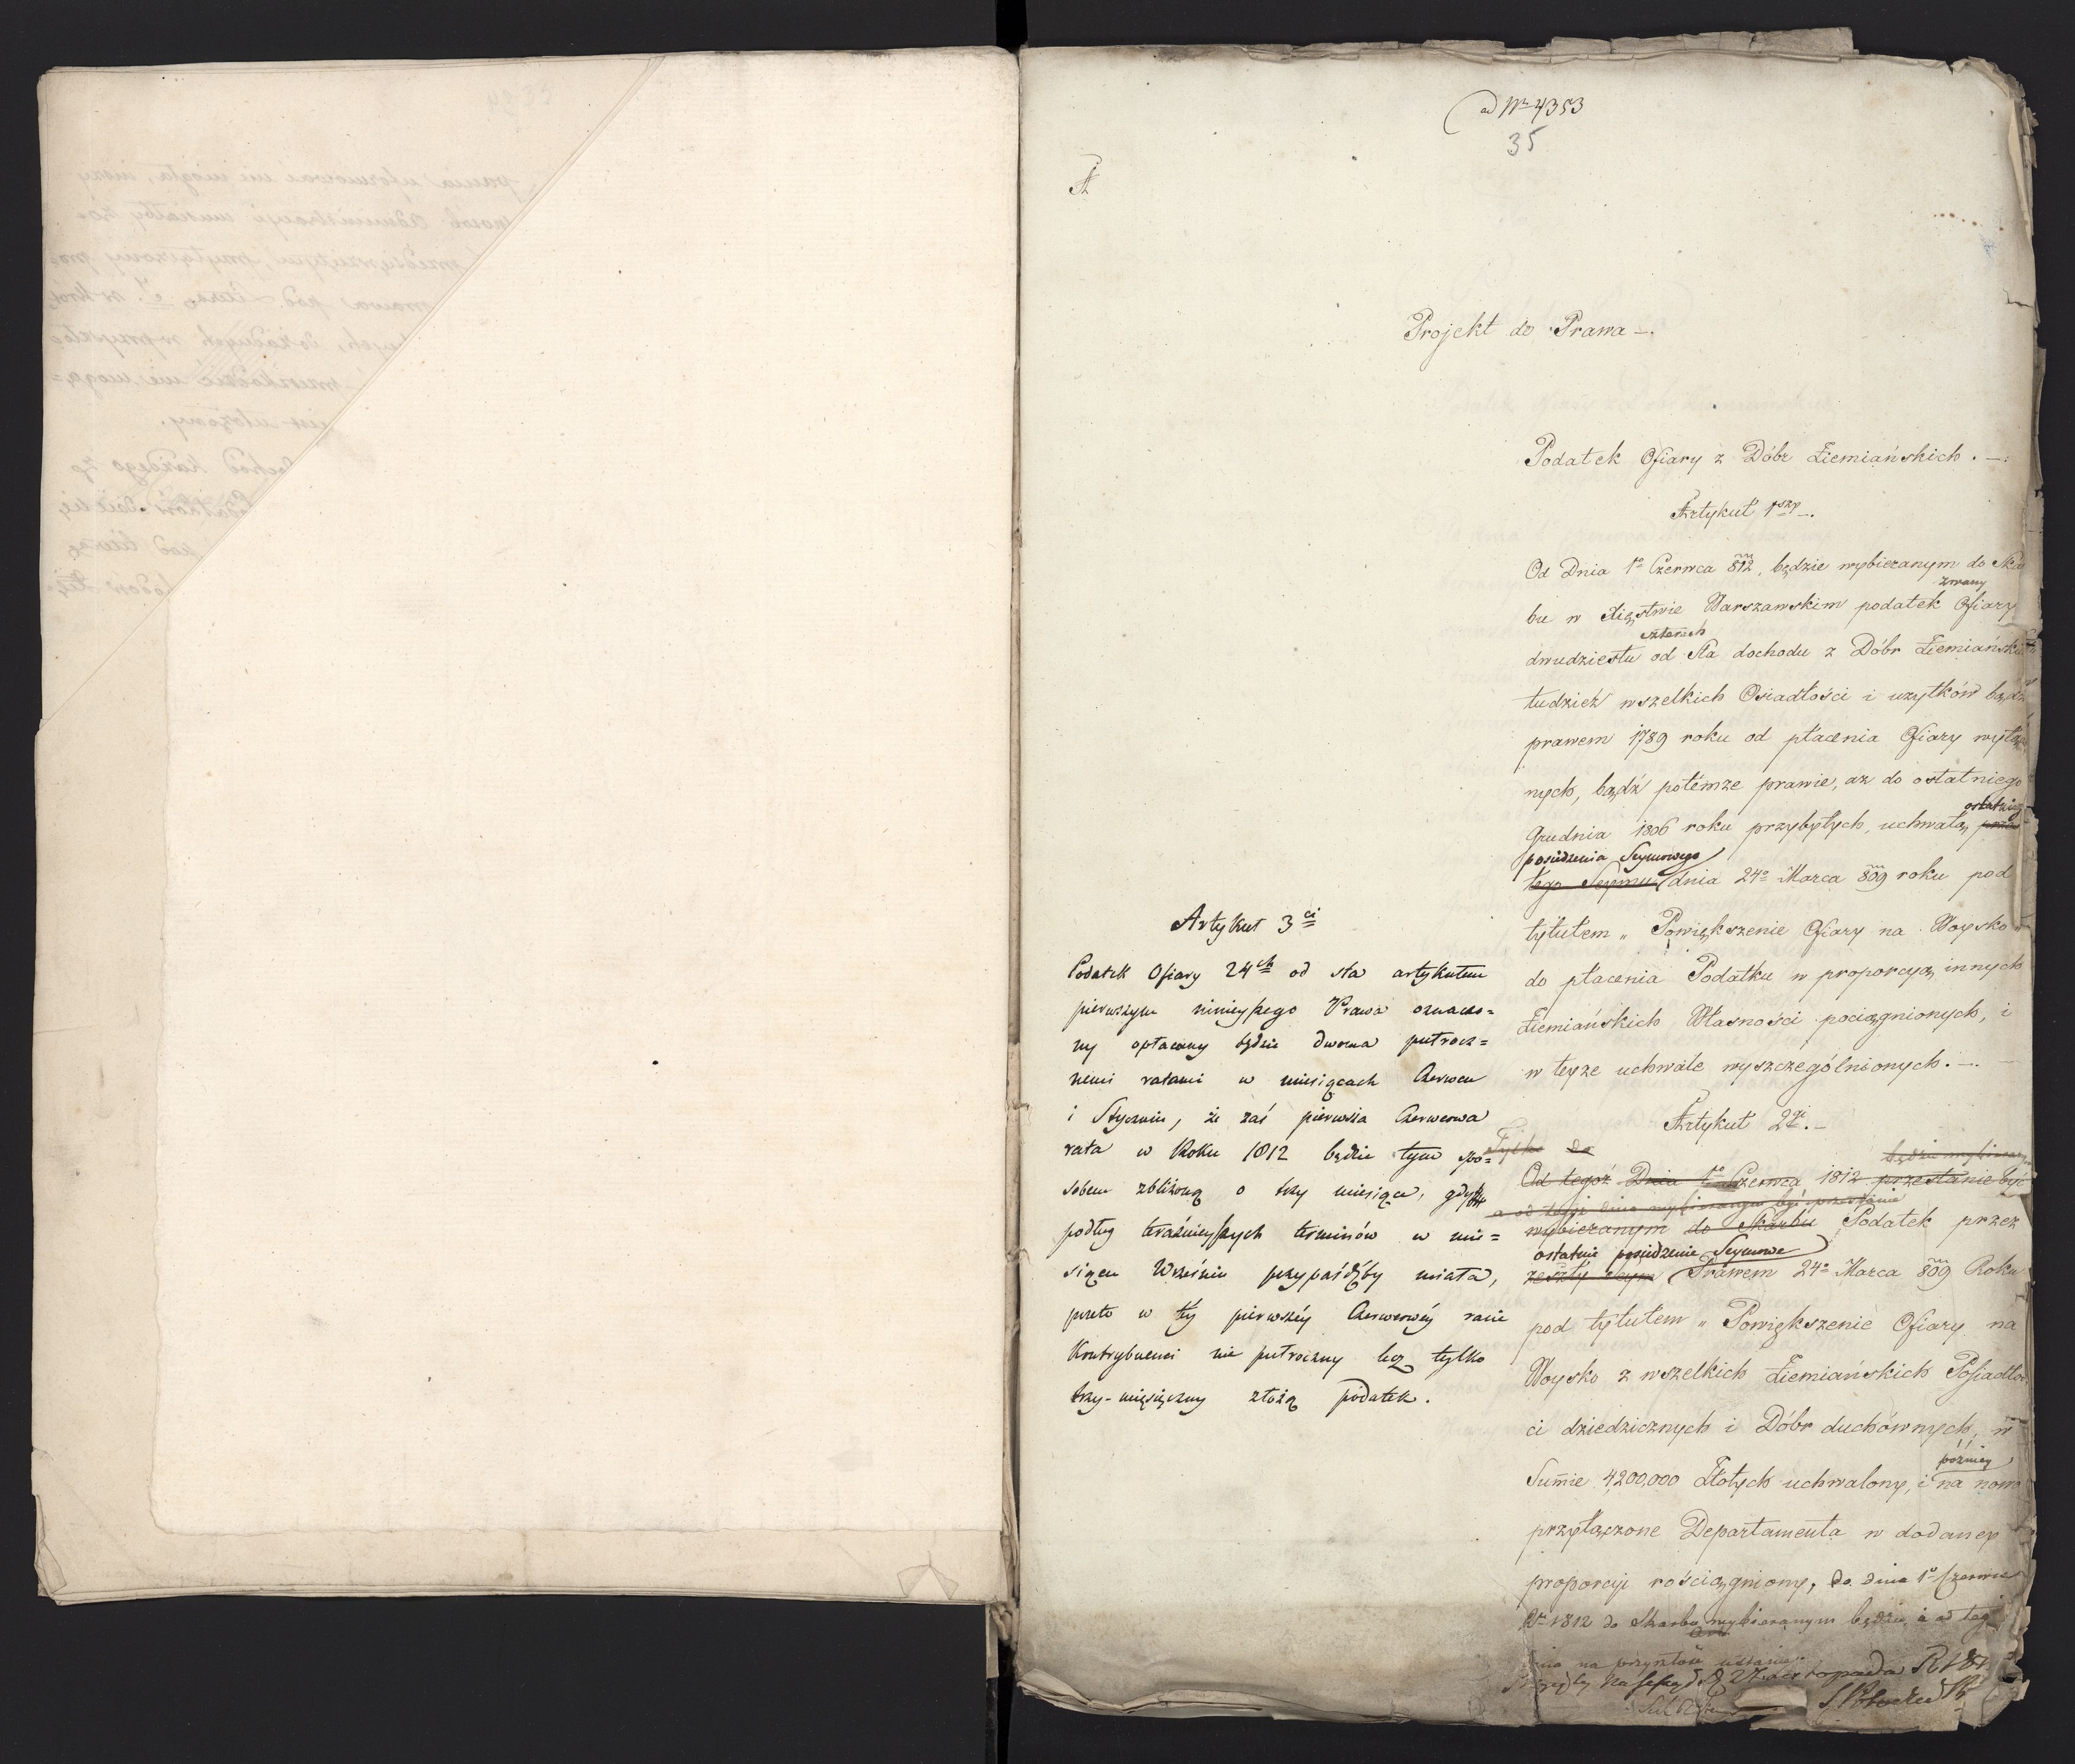 ad Nr 4353
35
A
Projekt do Prawa —.
Podatek Ofiary z Dóbr Ziemiańskich. —.
Artykuł 1szy —.
Od Dnia 1o Czerwca 812, będzie wybieranym do Ska
zwany
bu w Xięstwie Warszawskim podatek Ofiary
czterech
dwudziestu od Sta dochodu z Dóbr Ziemiańskich
tudzież wszelkich Osiadłości i użytków bądź
prawem 1789 roku od płacenia Ofiary wyłą
nych, bądź potémże prawie, aż do ostatniego
ostatniego
Grudnia 1806 roku przybyłych, uchwałą
posiedzenia Seymowego
tego Seymu dnia 24o Marca 809 roku pod
tytułem „ Powiększenie Ofiary na Woysko "
do płacenia Podatku w proporcyą innych
Ziemiańskich Własności pociągnionych, i
w teyże uchwale wyszczególnionych. —.
Artykuł 2gi. —
Tylko do
będzie wybierany
Od tegoż Dnia 1o Czerwca 1812 przestanie być
a od tegoż dnia wybieranym być przestanie
wybieranym do Skarbu Podatek przez
ostatnie posiedzenie Seymowe
zeszły Seym Prawem 24o Marca 809 Roku
pod tytułem „ Powiększenie Ofiary na
Woysko z wszelkich Ziemiańskich Posiadłoś
ci dziedzicznych i Dóbr duchównych, w
później
Summie 4,200,000 Złotych uchwalony, i na nowo
przyłączone Departamenta w dodaney
proporcyi rościągniony, do dnia 1o Czerwca
Ro 1812 do Skarbu wybieranym będzie, a od tegoż
dnia na przyszłość ustanie.
27 Listopada R 181
Artykuł 3ci
Podatek Ofiary 24ch od sta artykułem
pierwszym ninieyszego Prawa oznaczo=
ny opłacany będzie dwoma putrocz=
nemi ratami w miesiącach Czerwcu
i Styczniu, że zaś pierwsza Czerwcowa
rata w Roku 1812 będzie tym spo=
sobem zbliżoną o trzy miesiące, gdyż
podług teraźnieyszych terminów w mie=
siącu Wrześniu przypaśdźby miała,
przeto w téy pierwszéy Czerwcowéy racie
Kontrybuenci nie putroczny lecz tylko
trzy-miesięczny złożą podatek.